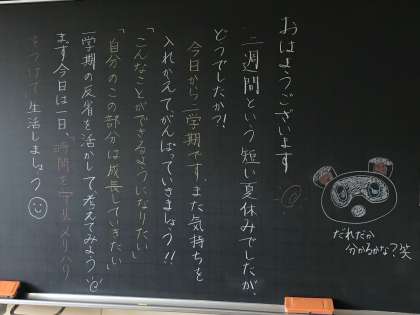 おはようございます
二週間という短い夏休みでしたが、
どうでしたか?!
今日から二学期です。また気持ちを
入れかえてがんばっていきましょう!!
「こんなことができるようになりたい」
「自分のこの部分は成長していきたい」
一学期の反省を活かして考えてみよう
まず今日は一日、「時間を守る、メリハリ
をつけて」生活しましょう
だれだか
分かるかな?笑